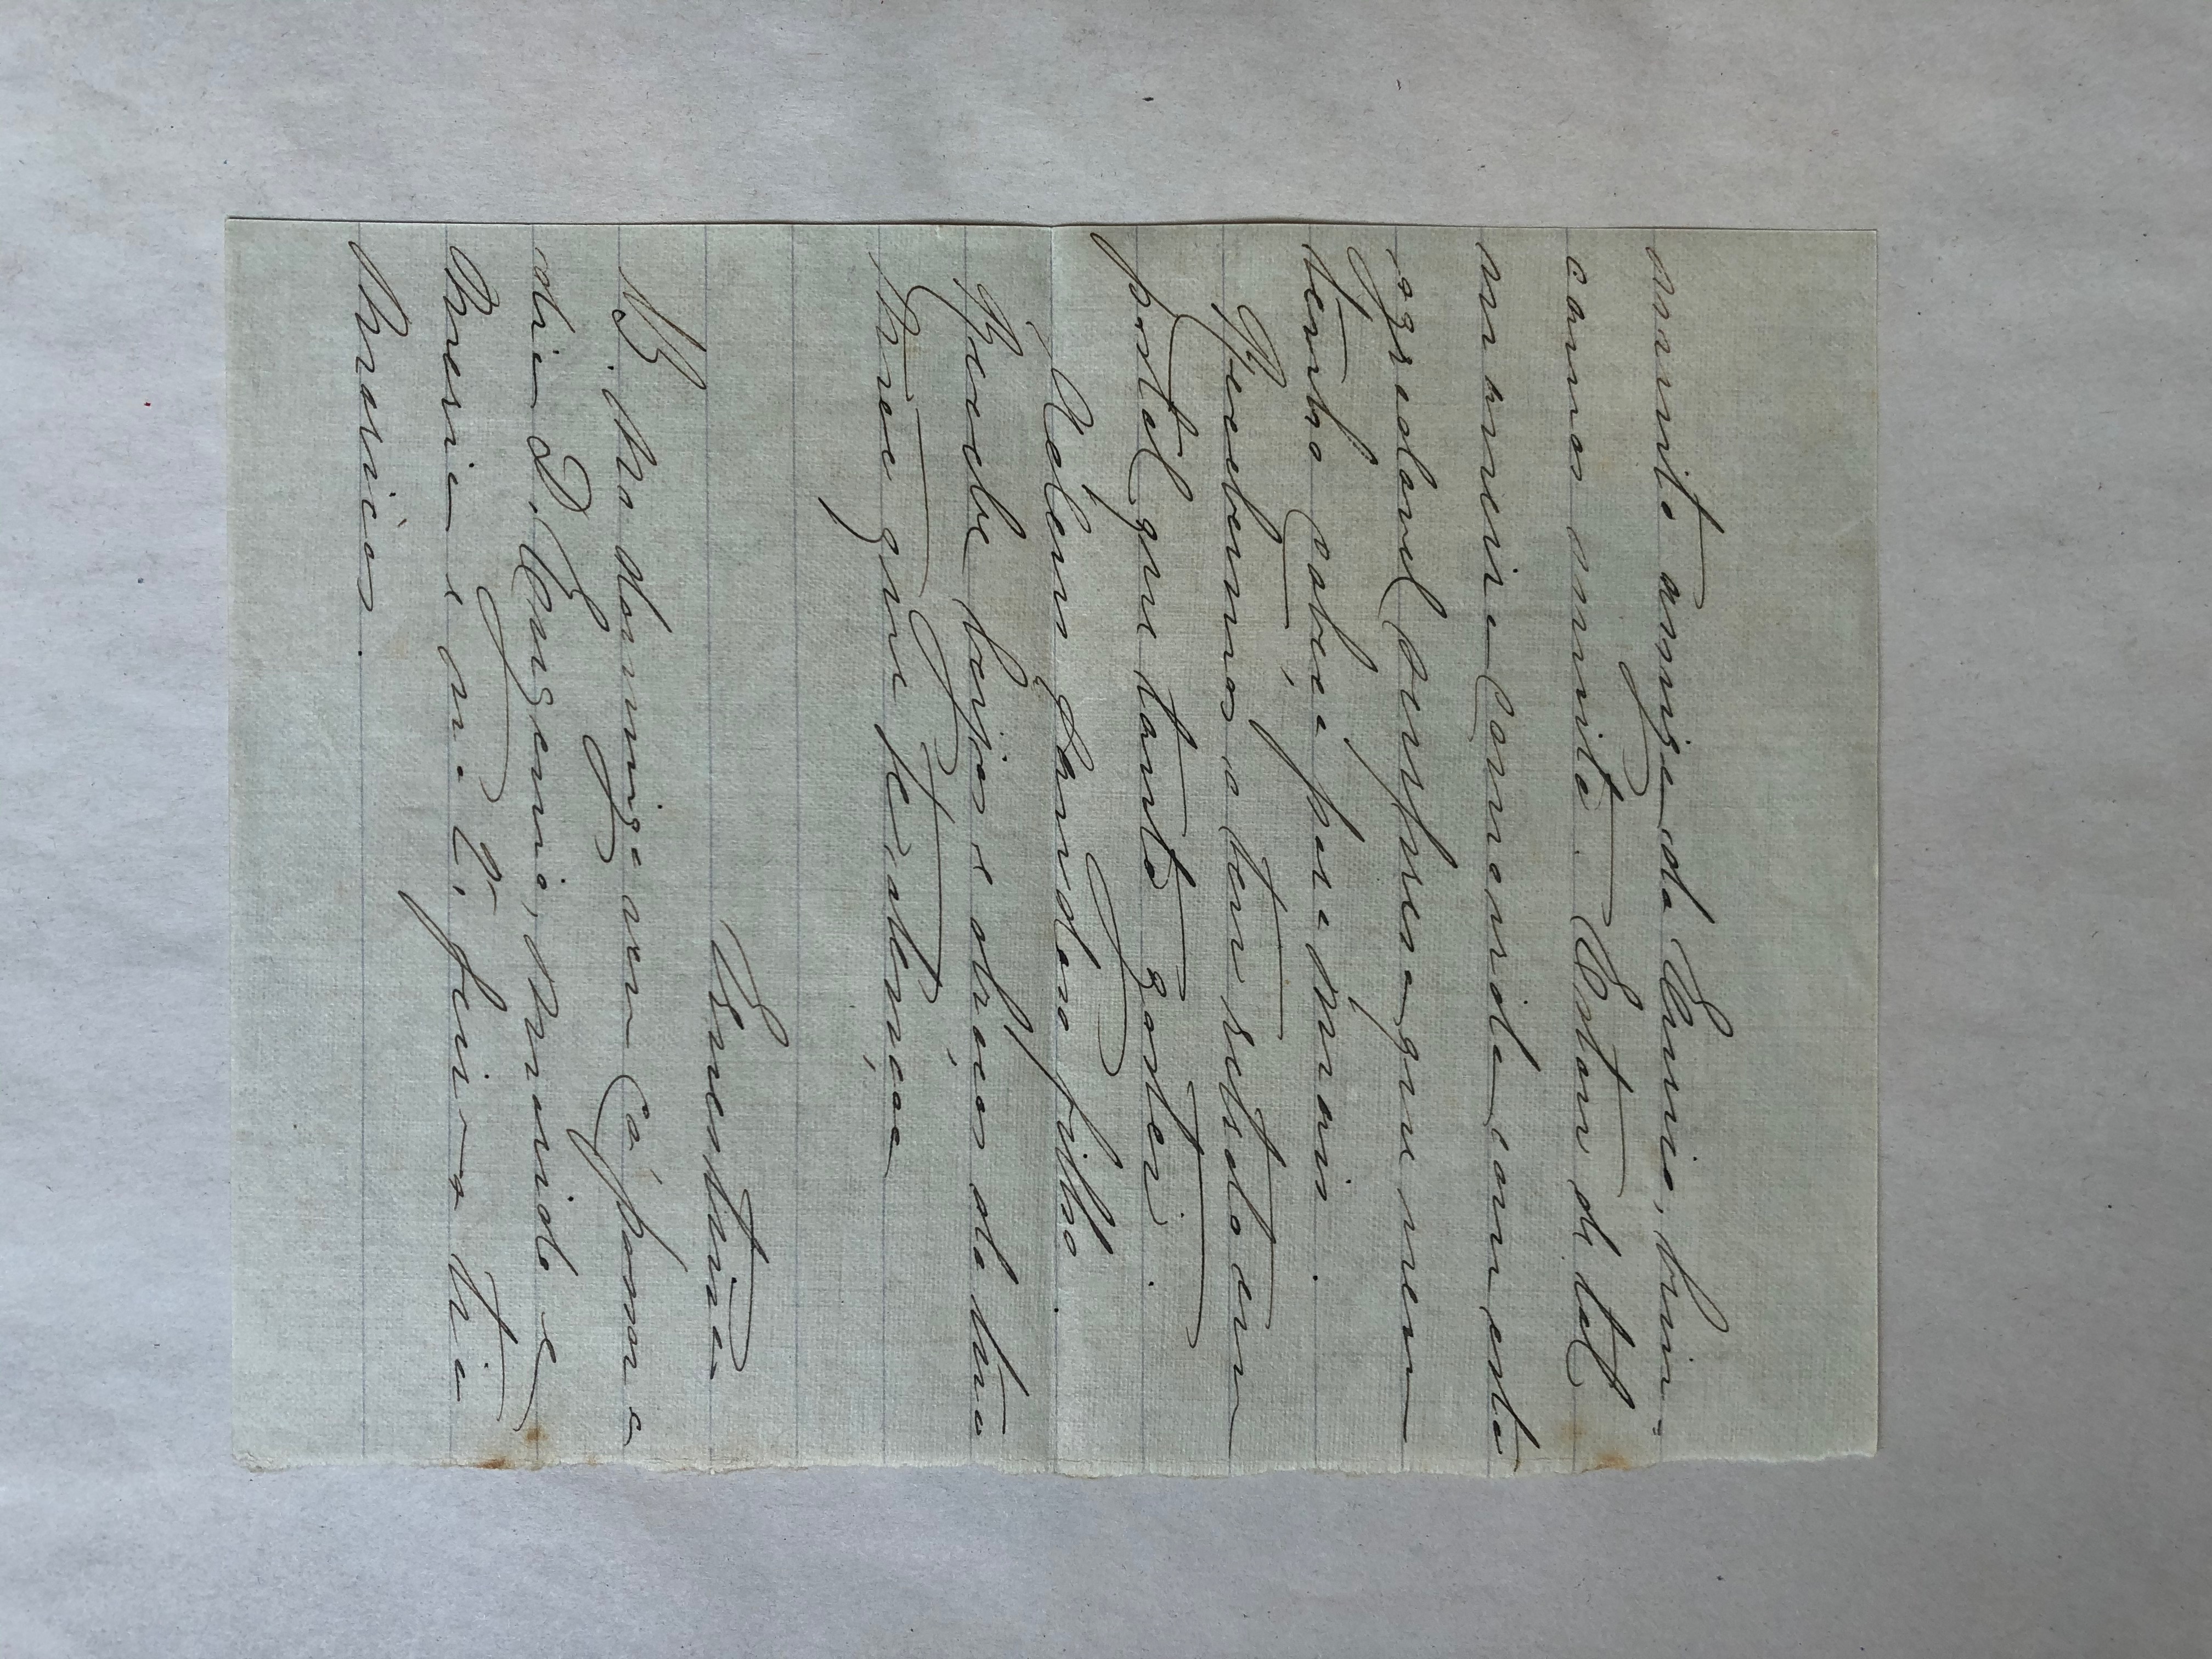 muito amiga do Eurico, brin-
camos muito. Estou de tal
maneira comovida com esta
agradavel surpresa que nem
tenho cabeça para mais.
Recebemos o teu retrato em
postal que tanto gostei.
Adeus saudoso filho.
Recebe beijos e abraços da tua
mãe que te abençoa
Ernestina
NB. No domingo vem cá passar o
dia D. Eugenia, marido e
Maria e na 2ª feira a tia
Maricas.